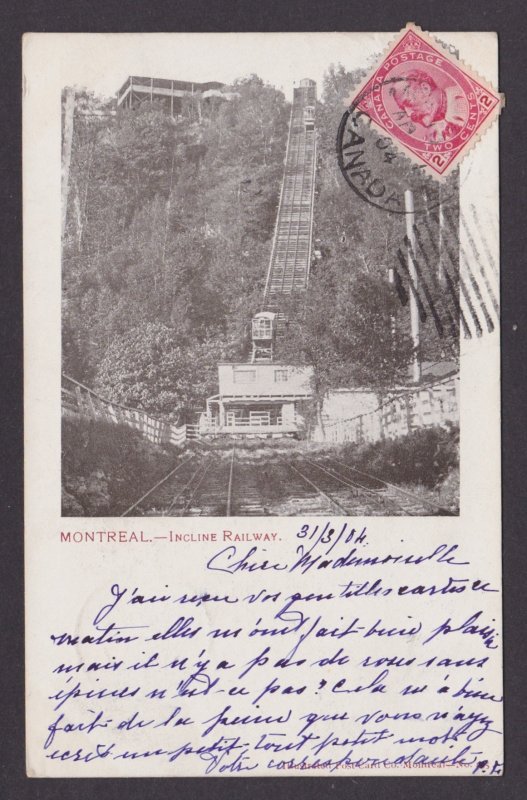 CANADA POSTAGE
2 TWO CENTS 2
CANADA
04
MONTREAL.—INCLINE RAILWAY.
31/3/04.
Chère Mademoiselle
J'ai reçu vos gentilles cartes ce
matin elles m'ont fait bien plaisir
mais il n'y a pas de roses sans
épines n'est-ce pas? Cela m'a bien
fait de la peine que vous n'ayez
écrit un petit, tout petit mot
Votre correspondante
Illustrated Post Card Co. Montreal—No.